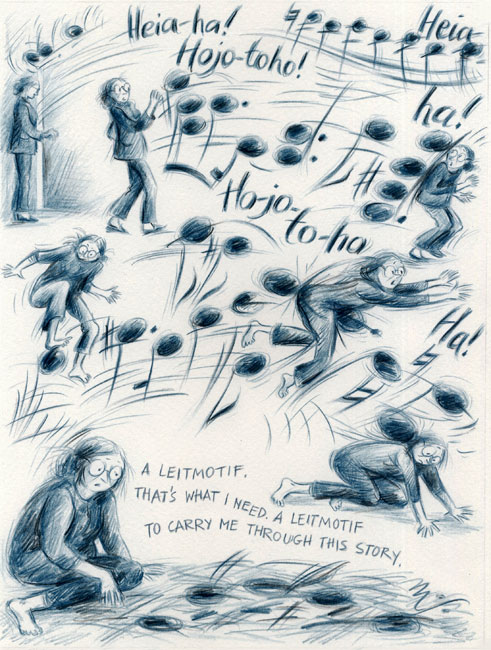 Heia-ha!
Hojo-toho!
Heia-
ha!
Ho-jo-
to-ha
Ha!
A LEITMOTIF.
THAT'S WHAT I NEED. A LEITMOTIF
TO CARRY ME THROUGH THIS STORY.